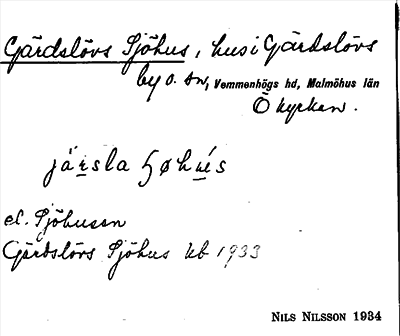 Gärdslövs Sjöhus, hus i Gärdslövs
by o. sn, Vemmenhögs hd, Malmöhus län
Ö kyrkan.
jäṟsla ʃøhu̱s
el. Sjöhusen
Gärdslövs Sjöhus kb 1933
NILS NILSSON 1934